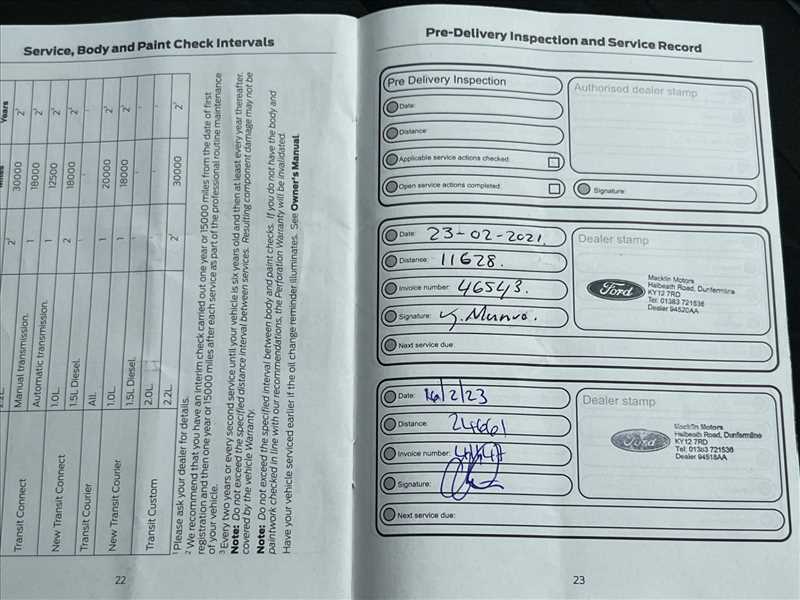 Service, Body and Paint Check Intervals
Years
Transit Connect Manual transmission. 2² 30000 2³
Automatic transmission. 1 18000 2³
New Transit Connect 1.0L. 1 12500 2³
1.5L Diesel. 2 18000 2³
Transit Courier All. - - -
New Transit Courier 1.0L. 1 20000 2³
1.5L Diesel. 1 18000 2³
Transit Custom 2.0L. - - -
2.2L. 2² 30000 2³
¹ Please ask your dealer for details.
² We recommend that you have an interim check carried out one year or 15000 miles from the date of first
registration and then one year or 15000 miles after each service as part of the professional routine maintenance
of your vehicle.
³ Every two years or every second service until your vehicle is six years old and then at least every year thereafter.
Note: Do not exceed the specified distance interval between services. Resulting component damage may not be
covered by the vehicle Warranty.
Note: Do not exceed the specified interval between body and paint checks. If you do not have the body and
paintwork checked in line with our recommendations, the Perforation Warranty will be invalidated.
Have your vehicle serviced earlier if the oil change reminder illuminates. See Owner's Manual.
22
Pre-Delivery Inspection and Service Record
Pre Delivery Inspection
Date:
Distance:
Applicable service actions checked:
Open service actions completed:
Authorised dealer stamp
Signature:
Date: 23-02-2021.
Distance: 11628.
Invoice number: 46543.
Signature: Munro.
Next service due:
Dealer stamp
Ford
Macklin Motors
Halbeath Road, Dunfermline
KY12 7RD
Tel: 01383 721536
Dealer 94520AA
Date: 16/2/23
Distance: 24661
Invoice number:
Signature:
Next service due:
Dealer stamp
Ford
Macklin Motors
Halbeath Road, Dunfermline
KY12 7RD
Tel: 01383 721536
Dealer 94518AA
23